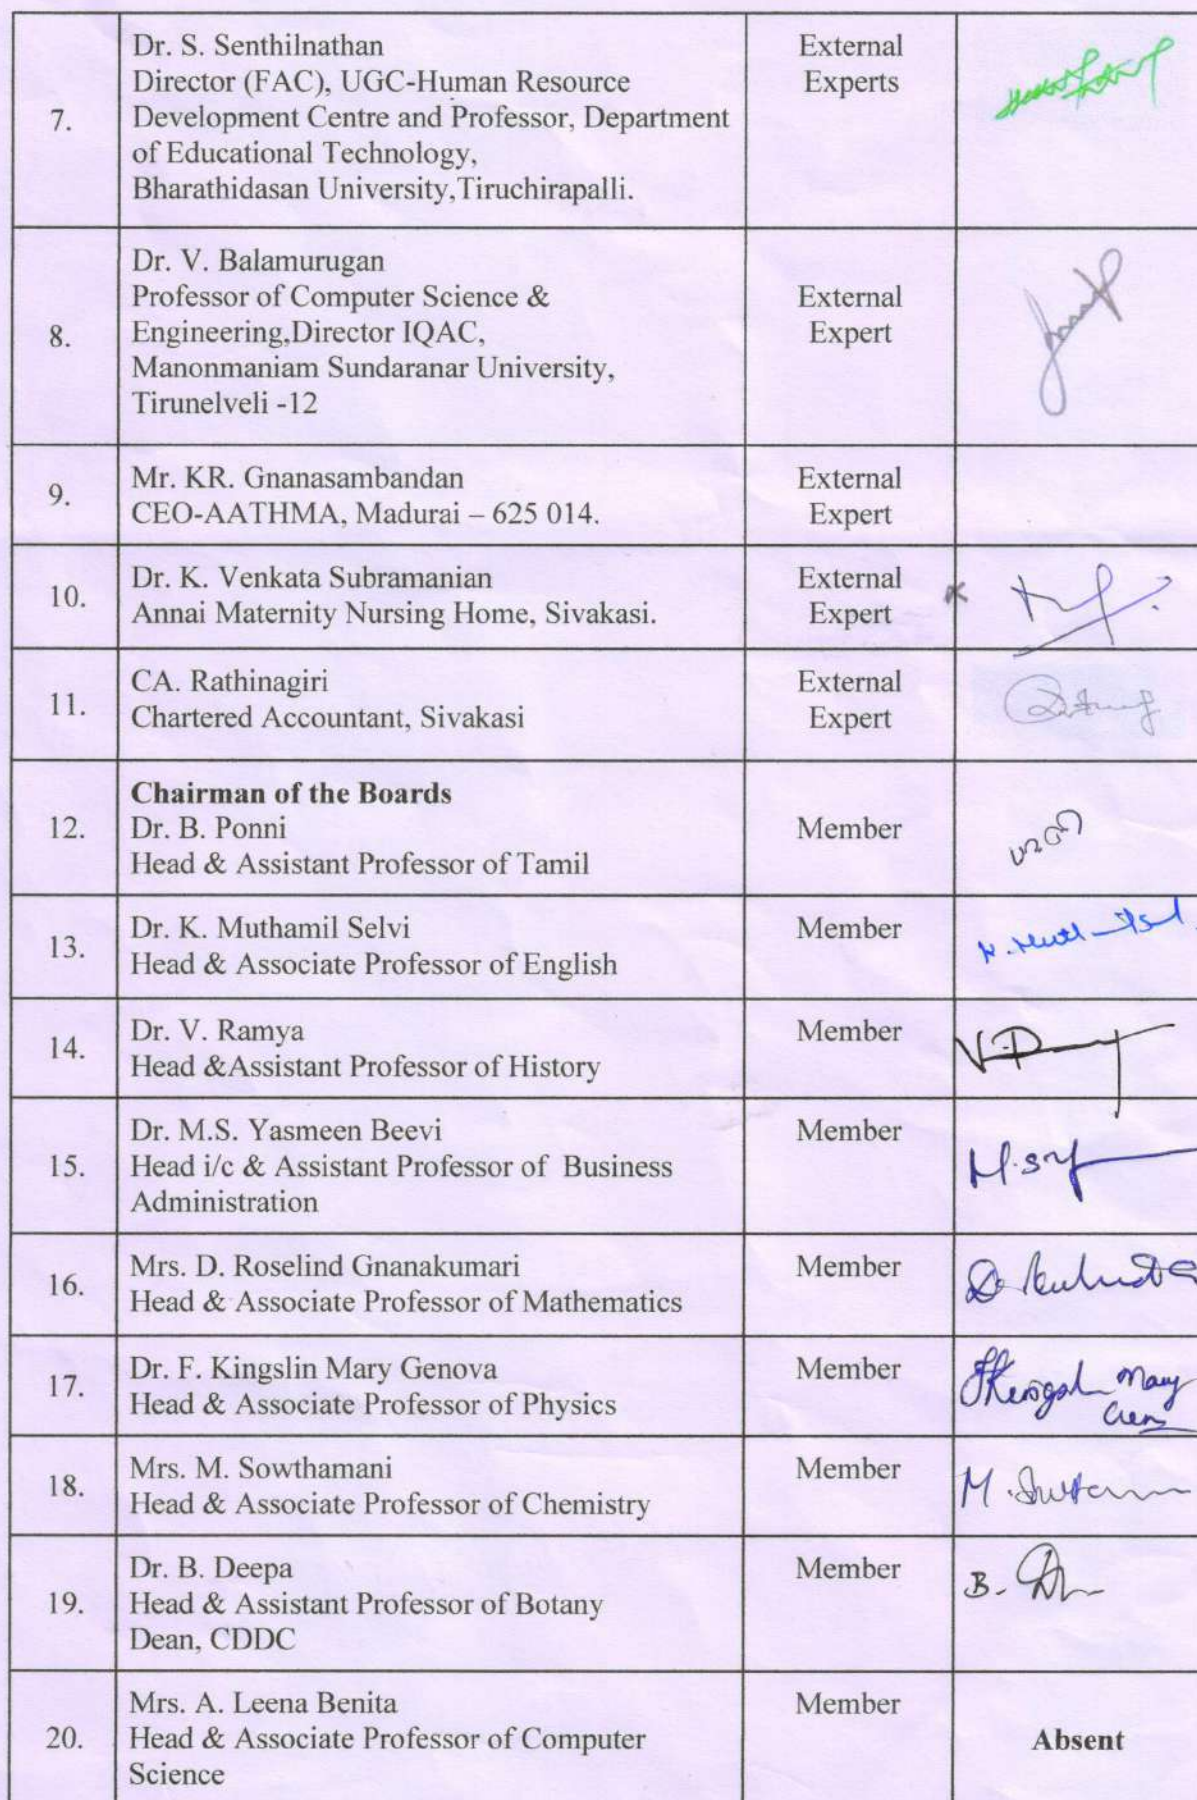 7.
Dr. S. Senthilnathan
Director (FAC), UGC-Human Resource
Development Centre and Professor, Department
of Educational Technology,
Bharathidasan University,Tiruchirapalli.
External
Experts
8.
Dr. V. Balamurugan
Professor of Computer Science &
Engineering,Director IQAC,
Manonmaniam Sundaranar University,
Tirunelveli -12
External
Expert
9.
Mr. KR. Gnanasambandan
CEO-AATHMA, Madurai – 625 014.
External
Expert
10.
Dr. K. Venkata Subramanian
Annai Maternity Nursing Home, Sivakasi.
External
Expert
11.
CA. Rathinagiri
Chartered Accountant, Sivakasi
External
Expert
12.
Chairman of the Boards
Dr. B. Ponni
Head & Assistant Professor of Tamil
Member
13.
Dr. K. Muthamil Selvi
Head & Associate Professor of English
Member
14.
Dr. V. Ramya
Head &Assistant Professor of History
Member
15.
Dr. M.S. Yasmeen Beevi
Head i/c & Assistant Professor of Business
Administration
Member
16.
Mrs. D. Roselind Gnanakumari
Head & Associate Professor of Mathematics
Member
17.
Dr. F. Kingslin Mary Genova
Head & Associate Professor of Physics
Member
18.
Mrs. M. Sowthamani
Head & Associate Professor of Chemistry
Member
19.
Dr. B. Deepa
Head & Assistant Professor of Botany
Dean, CDDC
Member
20.
Mrs. A. Leena Benita
Head & Associate Professor of Computer
Science
Member
Absent